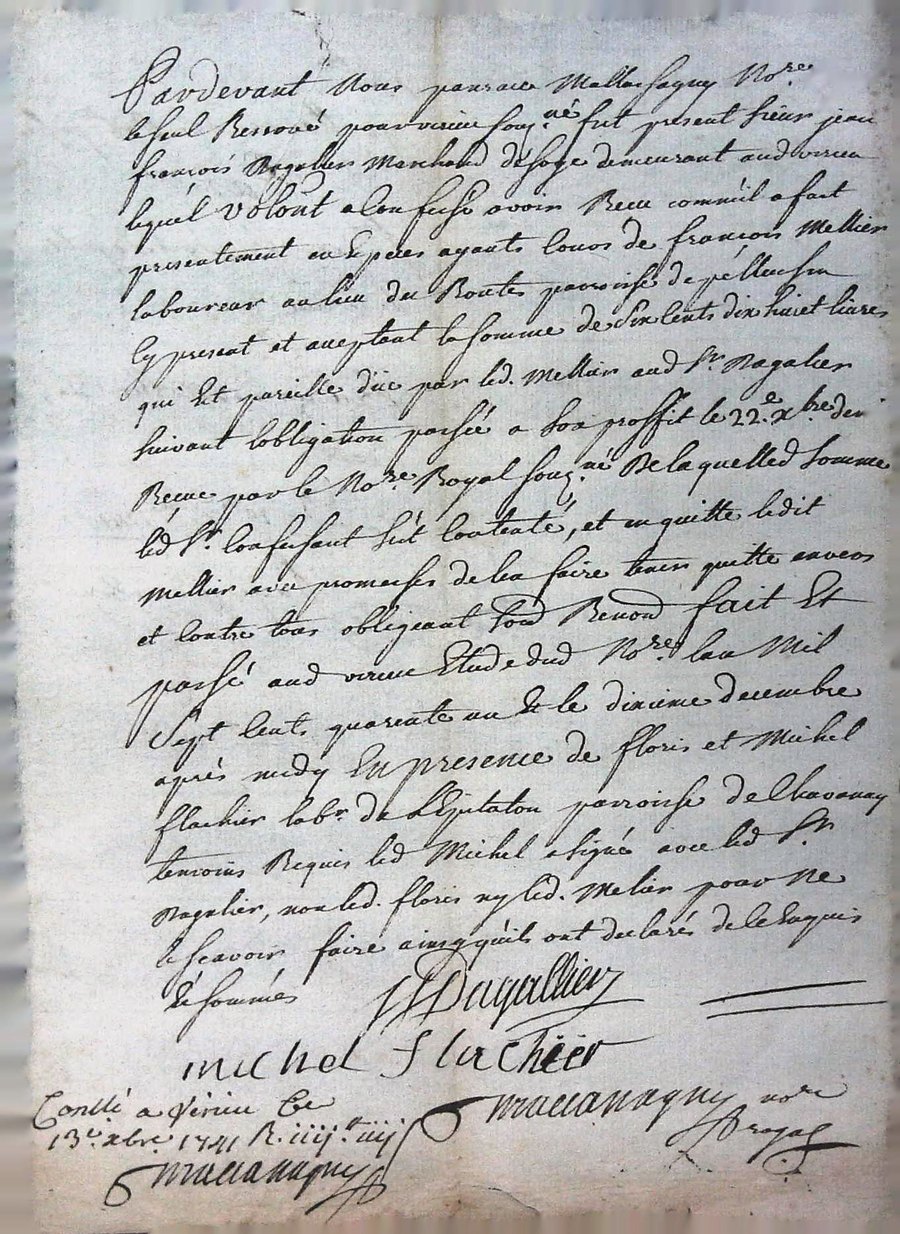 Pardevant Nous pancrace Mallassagny No.re
le seul Reservé pour virieu sousg.né fut present sieur jean
françois Dagalier Marchand de soye demeurant aud virieu
lequel volont a Confessé avoir Receu comme il a fait
presentement en Especes ayants Cours de françois Mellier
laboureur au lieu du Bouttes parroisse de pellussin
Cy present et acceptant la somme de Six Cents dix huict livres
qui Est pareille düe par led. Mellier aud Sr. Dagalier
suivant lobligation passée a son proffit le 22.e xbre der
Receue par le No.re Royal sousg.né De laquelled somme
led Sr. Confessant s'est Contenté, et en quitte ledit
Mellier avec promesses de len faire tenir quitte envers
et Contre tous obligeant Soud Renond fait Et
passé aud virieu Etude dud No.re lan Mil
Sept Cents quarente un Et le dixieme decembre
après midy En presence de floris et Michel
flachier labr. de L'Epitaton parroisse de Chavanay
temoins Requis led Michel a signé avec led Sr
Dagalier, non led. floris ny led. Melier pour Ne
le scavoir faire ainsy quils ont declarés de ce Enquis
Et sommés
JF Dagallier
michel flachier
Conllé a Virieu Ce
mallassagny no.re
13.e xbre 1741 R. iiij.lt iiij s
royal
mallassagny